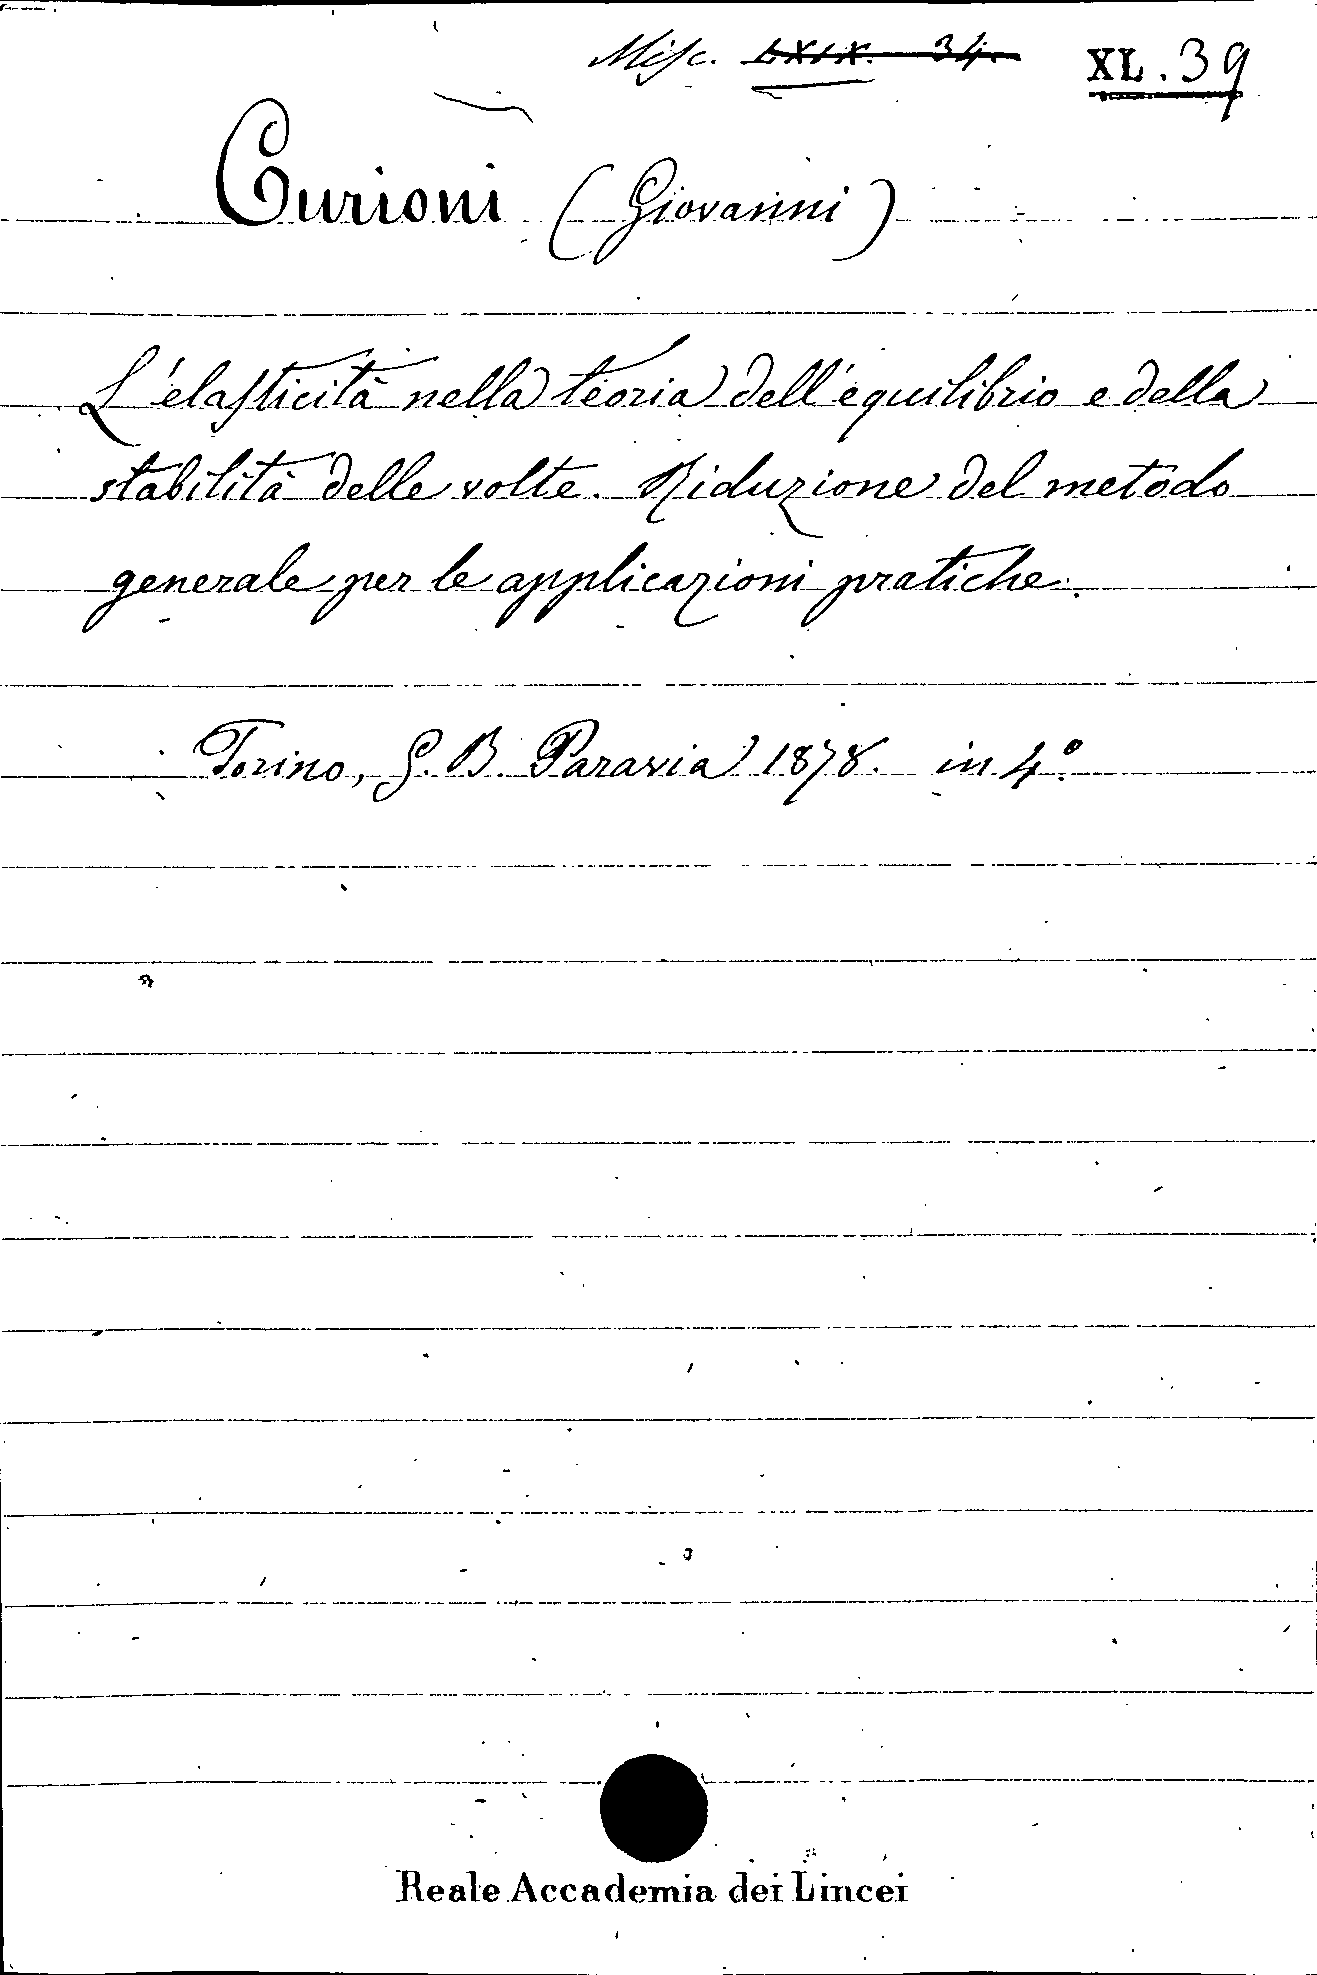 Misc. LXIX. 34. XL. 39
Curioni (Giovanni)
L'elasticità nella teoria dell'equilibrio e della
stabilità delle volte. Riduzione del metodo
generale per le applicazioni pratiche.
Torino, G. B. Paravia 1878. in 4.º
Reale Accademia dei Lincei